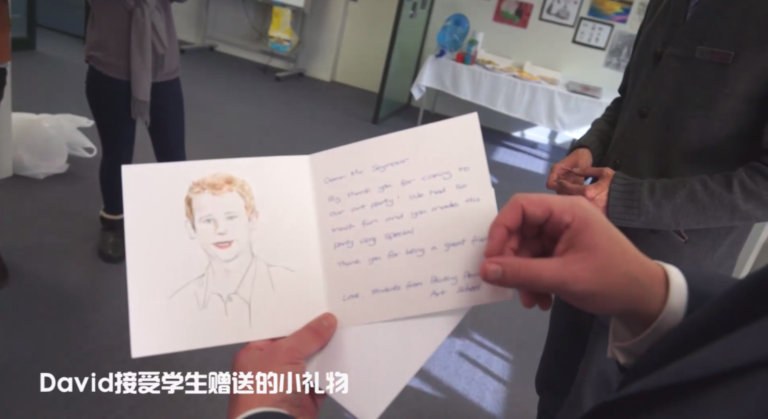 Dear Mr Seymour
Big thank you for coming to
our art party! We had so
much fun and you made this
party very special
Thank you for being a great
Love, students from
Art School
David接受学生赠送的小礼物